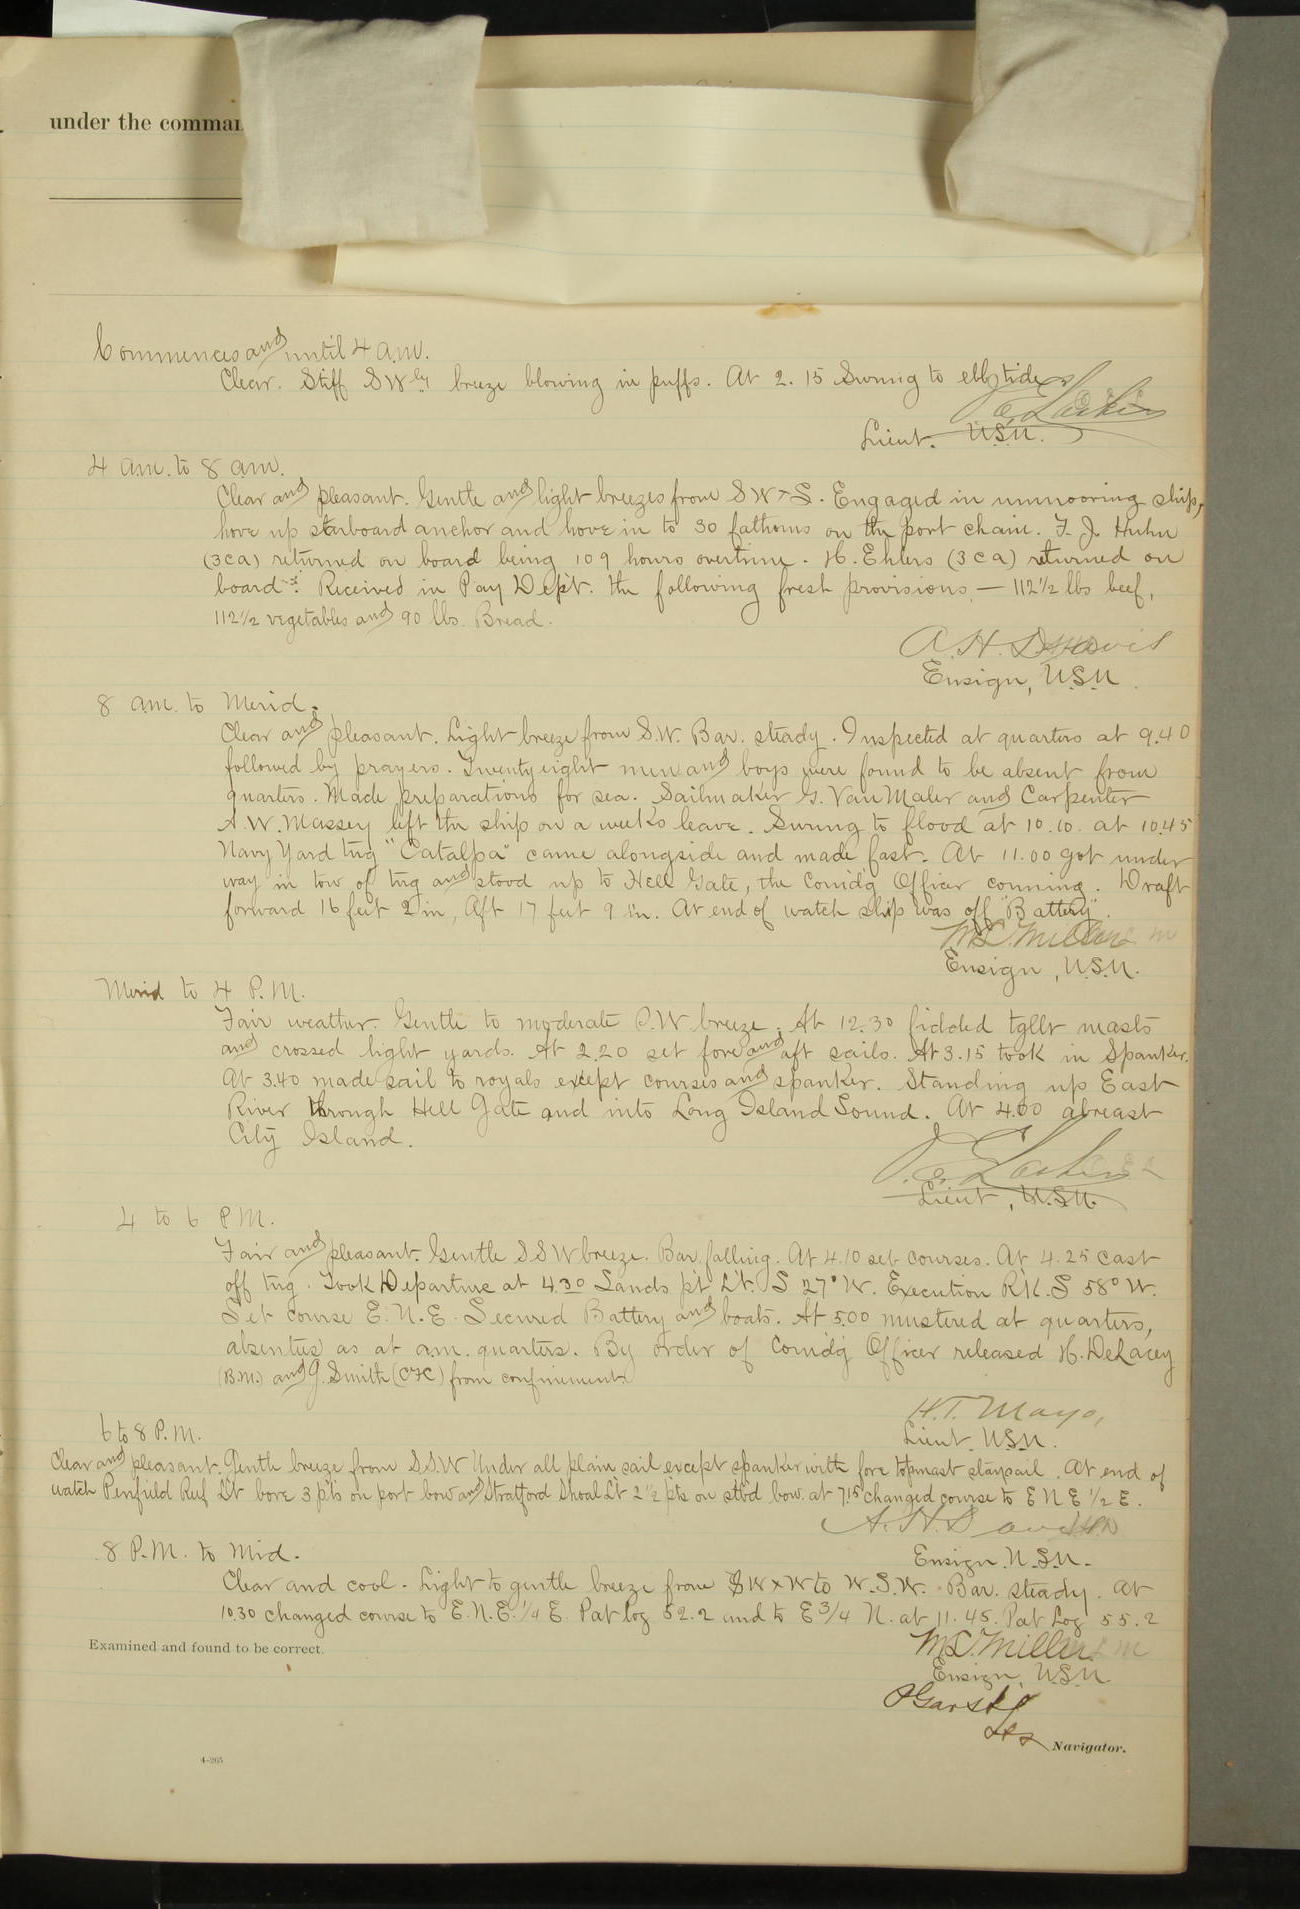 under the comman
Commences and until 4 a.m.
Clear. Stiff SWly breeze blowing in puffs. At 2.15 Swung to ebb tide.
Lieut. U.S.N.
4 a.m. to 8 a.m.
Clear and pleasant. Gentle and light breezes from SWxS. Engaged in unmooring ship,
hove up starboard anchor and hove in to 30 fathoms on the port chain. F. J. Huhn
(3ca) returned on board being 109 hours overtime. H. Ehlers (3ca) returned on
board. Received in Pay Dept. the following fresh provisions — 112½ lbs beef,
112½ vegetables and 90 lbs. Bread.
A. H. Davis
Ensign, U.S.N.
8 a.m. to Merid.
Clear and pleasant. Light breeze from S.W. Bar. steady. Inspected at quarters at 9.40
followed by prayers. Twenty eight men and boys were found to be absent from
quarters. Made preparations for sea. Sailmaker G. Van Mater and Carpenter
A. W. Massey left the ship on a week's leave. Swung to flood at 10.10. at 10.45
Navy Yard tug "Catalpa" came alongside and made fast. At 11.00 got under
way in tow of tug and stood up to Hell Gate, the Comd'g Officer conning. Draft
forward 16 feet 2 in, Aft 17 feet 9 in. At end of watch ship was off "Battery".
M.L. Miller
Ensign, U.S.N.
Merid to 4 P.M.
Fair weather. Gentle to moderate S.W breeze. At 12.30 fidded tgllt masts
and crossed light yards. At 2.20 set fore and aft sails. At 3.15 took in Spanker.
At 3.40 made sail to royals except courses and spanker. Standing up East
River through Hell Gate and into Long Island Sound. At 4.00 abreast
City Island.
Lieut, U.S.N.
4 to 6 P.M.
Fair and pleasant. Gentle SSW breeze. Bar. falling. At 4.10 set courses. At 4.25 cast
off tug. Took Departure at 4.30 Sands pt Lt. S 27° W. Execution Rk. S 58° W.
Set course E.N.E. Secured Battery and boats. At 5.00 mustered at quarters,
absentees as at a.m. quarters. By order of Comd'g Officer released H. DeLacey
(B.M.) and G. Smith (CFC) from confinement.
H.T. Mayo,
Lieut. U.S.N.
6 to 8 P.M.
Clear and pleasant. Gentle breeze from SSW Under all plain sail except spanker with fore topmast staysail. At end of
watch Penfield Reef Lt bore 3 pts on port bow and Stratford Shoal Lt 2½ pts on stbd bow. at 7.15 changed course to E N E ½ E.
A. H. Davis
Ensign U.S.N.
8 P.M. to Mid.
Clear and cool. Light to gentle breeze from SWxW to W.S.W. Bar. steady. At
10.30 changed course to E.N.E. ¼ E. Pat Log 52.2 and to E ¾ N. at 11.45. Pat Log 55.2
Examined and found to be correct.
M.L. Miller
Ensign, U.S.N
P Garst
Navigator.
4-265